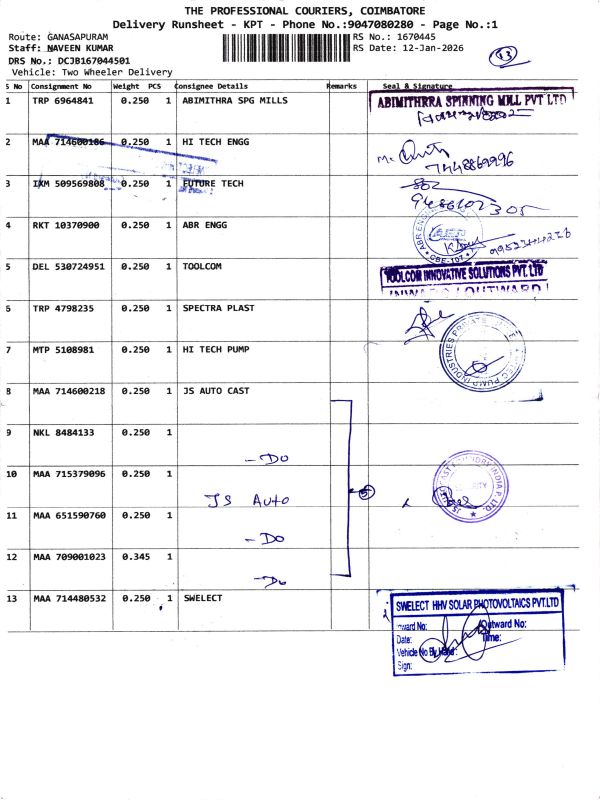 THE PROFESSIONAL COURIERS, COIMBATORE
Delivery Runsheet - KPT - Phone No.:9047080280 - Page No.:1
Route: GANASAPURAM
RS No.: 1670445
Staff: NAVEEN KUMAR
RS Date: 12-Jan-2026
13
DRS No.: DCJB167044501
Vehicle: Two Wheeler Delivery
S No Consignment No Weight PCS Consignee Details Remarks Seal & Signature
1 TRP 6964841 0.250 1 ABIMITHRA SPG MILLS
ABIMITHRRA SPINNING MILL PVT LTD
2 MAA 714600186 0.250 1 HI TECH ENGG
7448869996
3 IXM 509569808 0.250 1 FUTURE TECH
9486102305
4 RKT 10370900 0.250 1 ABR ENGG
ABR ENGINEERING
CBE-107
5 DEL 530724951 0.250 1 TOOLCOM
TOOLCOM INNOVATIVE SOLUTIONS PVT. LTD
INWARD / OUTWARD
6 TRP 4798235 0.250 1 SPECTRA PLAST
7 MTP 5108981 0.250 1 HI TECH PUMP
PUMP INDUSTRIES PRIVATE
8 MAA 714600218 0.250 1 JS AUTO CAST
9 NKL 8484133 0.250 1
- Do
10 MAA 715379096 0.250 1
JS Auto
5
11 MAA 651590760 0.250 1
- Do
12 MAA 709001023 0.345 1
- Do
13 MAA 714480532 0.250 1 SWELECT
SWELECT HHV SOLAR PHOTOVOLTAICS PVT.LTD
Inward No: Outward No:
Date: Time:
Vehicle No By Hand:
Sign: